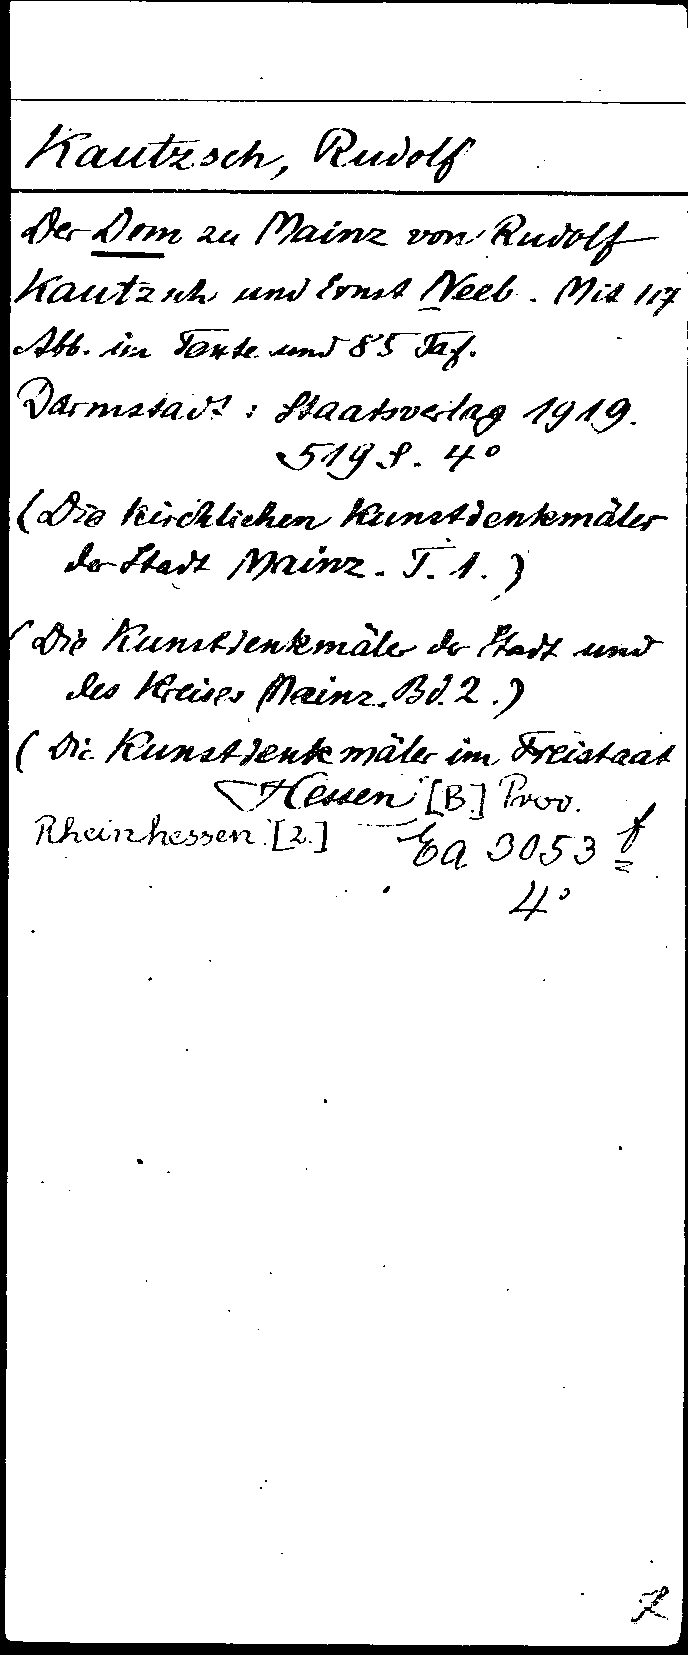 Kautzsch, Rudolf
Der Dom zu Mainz von Rudolf
Kautzsch und Ernst Neeb. Mit 117
Abb. im Texte und 85 Taf.
Darmstadt: Staatsverlag 1919.
519 S. 4°
(Die kirchlichen Kunstdenkmäler
der Stadt Mainz. T. 1.)
(Die Kunstdenkmäler der Stadt und
des Kreises Mainz. Bd. 2.)
(Die Kunstdenkmäler im Freistaat
Hessen [B.] Prov.
Rheinhessen. [2.]
Ea 3053 f
4°